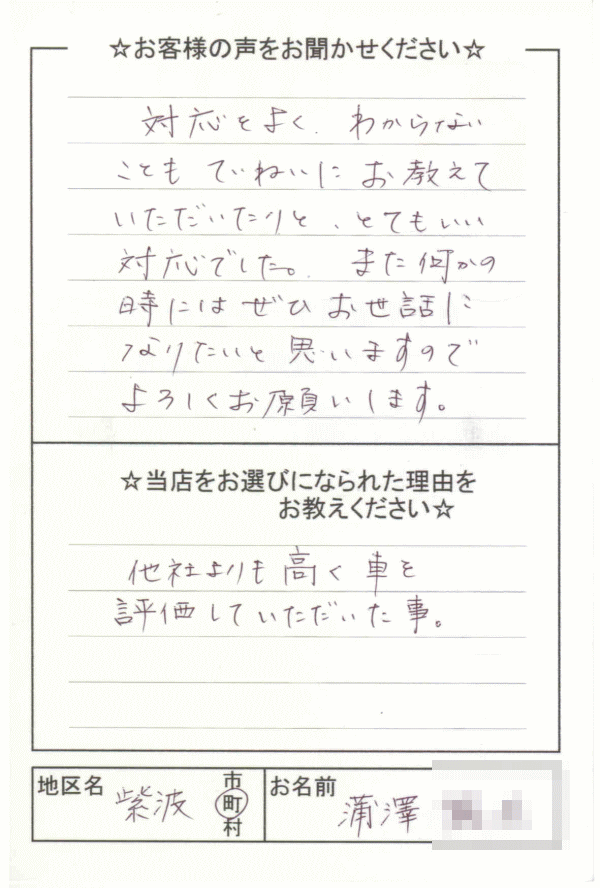 ☆お客様の声をお聞かせください☆
対応もよく、わからない
こともていねいにお教えて
いただいたりと、とてもいい
対応でした。また何かの
時にはぜひお世話に
なりたいと思いますので
よろしくお願いします。
☆当店をお選びになられた理由を
お教えください☆
他社よりも高く車を
評価していただいた事。
地区名 紫波 市町村 お名前 蒲澤